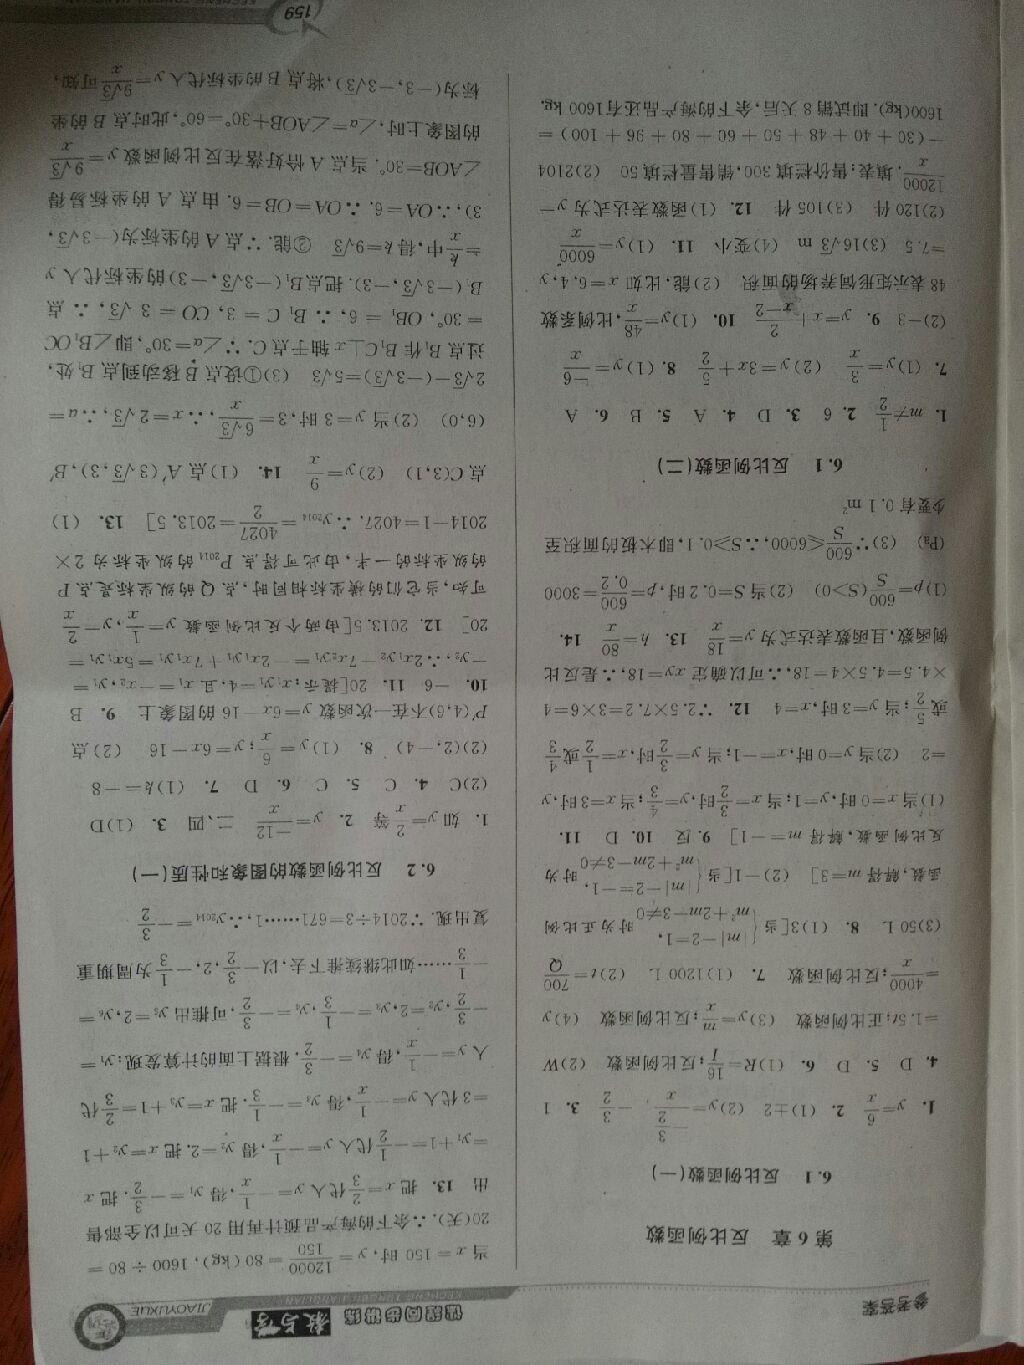 参考答案
课程同步讲练 教与学
JIAOYUXUE
第6章 反比例函数
6.1 反比例函数(一)
1. y=6/x 2. (1)±2 (2)y=-(3/2)/x -3/2 3. 1
4. D 5. D 6. (1)R=16/I;反比例函数 (2)W
=1.5t;正比例函数 (3)y=m/x;反比例函数 (4)y
=4000/x;反比例函数 7. (1)1200 L (2)t=700/Q
(3)50 L 8. (1)3[当{|m|-2=1, m²+2m-3≠0 时为正比例
函数,解得 m=3] (2)-1[当{|m|-2=-1, m²+2m-3≠0 时为
反比例函数,解得 m=-1] 9. 反 10. D 11.
(1)当 x=0 时,y=1;当 x=3/2时,y=4/3;当 x=3 时,y
=2 (2)当 y=0 时,x=-1;当 y=3/2时,x=1/2或4/3
或5/2;当 y=3 时,x=4 12. ∵2.5×7.2=3×6=4
×4.5=4.5×4=18,∴可以确定 xy=18,∴是反比
例函数,且函数表达式为 y=18/x 13. h=80/x 14.
(1)p=600/S(S>0) (2)当 S=0.2 时,p=600/0.2=3000
(Pa) (3)∵600/S≤6000,∴S≥0.1,即木板的面积至
少要有 0.1 m²
6.1 反比例函数(二)
1. m≠1/2 2. 6 3. D 4. A 5. B 6. A
7. (1)y=3/x (2)y=3x+5/2 8. (1)y=-6/x
(2)-3 9. y=x+2/(x-2) 10. (1)y=48/x,比例系数
48 表示矩形饲养场的面积 (2)能.比如 x=6.4,y
=7.5 (3)16√3 m (4)变小 11. (1)y=6000/x
(2)120 件 (3)105 件 12. (1)函数表达式为 y=
12000/x.填表:售价栏填 300,销售量栏填 50 (2)2104
-(30+40+48+50+60+80+96+100)=
1600(kg).即试销 8 天后,余下的海产品还有 1600 kg.
当 x=150 时,y=12000/150=80(kg),1600÷80=
20(天).∴余下的海产品预计再用 20 天可以全部售
出 13. 把 x=2/3代入 y=-1/x,得 y₁=-3/2.把 x
=y₁+1=-1/2代入 y=-1/x,得 y₂=2.把 x=y₂+1
=3 代入 y=-1/x,得 y₃=-1/3.把 x=y₃+1=2/3代
入 y=-1/x,得 y₄=-3/2.根据上面的计算发现:y₁=
-3/2,y₂=2,y₃=-1/3,y₄=-3/2,可推出 y₅=2,y₆=
-1/3……如此继续推下去,以-3/2,2,-1/3为周期重
复出现.∵2014÷3=671……1,∴y₂₀₁₄=-3/2
6.2 反比例函数的图象和性质(一)
1. 如 y=2/x等 2. y=-12/x 二、四 3. (1)D
(2)C 4. C 5. C 6. D 7. (1)k=-8
(2)(2,-4) 8. (1)y=6/x;y=6x-16 (2)点
P′(4,6)不在一次函数 y=6x-16 的图象上 9. B
10. -6 11. 20[提示:x₁y₁=4,且 x₁=-x₂,y₁=
-y₂,∴2x₁y₂-7x₂y₁=-2x₁y₁+7x₁y₁=5x₁y₁=
20] 12. 2013.5[由两个反比例函数 y=1/x,y=2/x
可知,当它们的横坐标相同时,点 Q 的纵坐标是点 P
的纵坐标的一半,由此可得点 P₂₀₁₄的纵坐标为 2×
2014-1=4027.∴y₂₀₁₄=4027/2=2013.5] 13. (1)
点 C(3,1) (2)y=9/x 14. (1)点 A′(3√3,3),B′
(6,0) (2)当 y=3 时,3=6√3/x,∴x=2√3,∴a=
2√3-(-3√3)=5√3 (3)①设点 B 移动到点 B₁处,
过点 B₁作 B₁C⊥x 轴于点 C.∵∠α=30°,即∠B₁OC
=30°,OB₁=6,∴B₁C=3,CO=3√3,∴点
B₁(-3√3,-3).把点B₁(-3√3,-3)的坐标代入 y
=k/x中,得 k=9√3 ②能.∵点 A 的坐标为(-3√3,
3),∴OA=6.∴OA=OB=6.由点 A 的坐标易得
∠AOB=30°.当点 A 恰好落在反比例函数 y=9√3/x
的图象上时,∠α=∠AOB+30°=60°,此时点 B 的坐
标为(-3,-3√3),将点 B 的坐标代入 y=9√3/x可知,
159